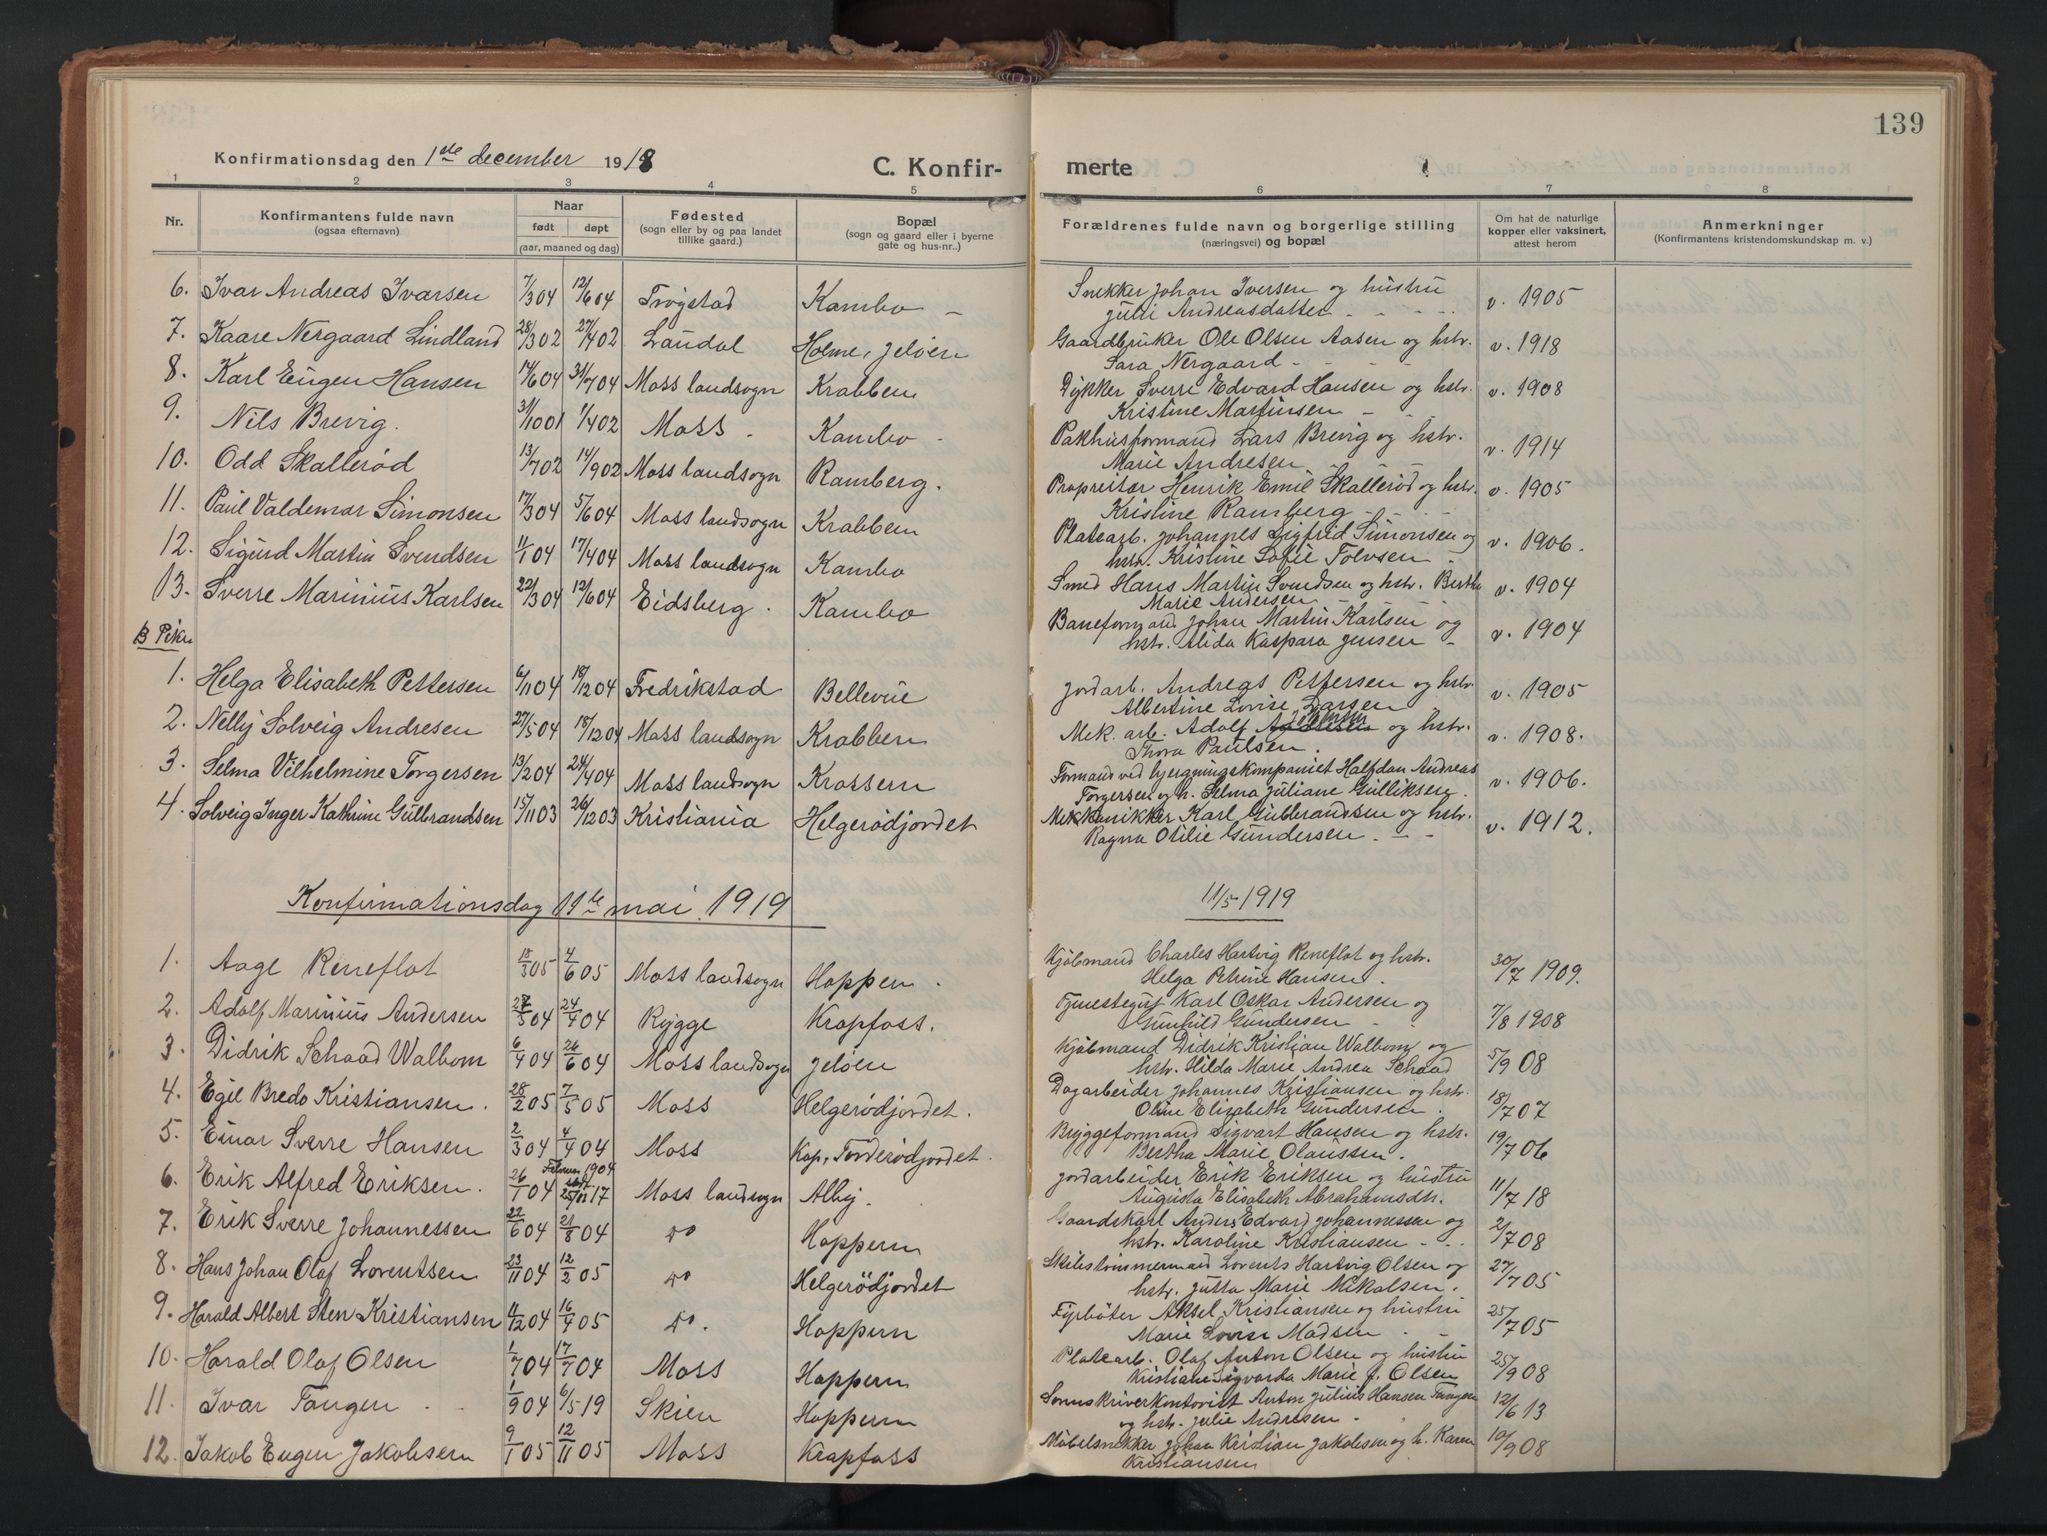 139
Konfirmationsdag den 1ste december 1918
C. Konfir-
merte
1 2 3 4 5 6 7 8
Nr.
Konfirmantens fulde navn
(ogsaa efternavn)
Naar
født døpt
(aar, maaned og dag)
Fødested
(sogn eller by og paa landet
tillike gaard.)
Bopæl
(sogn og gaard eller i byerne
gate og hus-nr..)
Forældrenes fulde navn og borgerlige stilling
(næringsvei) og bopæl
Om hat de naturlige
kopper eller vaksinert,
attest herom
Anmerkninger
(Konfirmantens kristendomskundskap m. v.)
6. Ivar Andreas Ivarsen 7/3 04 12/6 04 Trøgstad Kambo
Snekker Johan Iversen og hustru v. 1905
Juli Andreasdatter
7. Kaare Nergaard Lindland 28/3 02 27/4 02 Laudal Holme, Jeløen
Gaardbruker Ole Olsen Aasen og hstr. v. 1918
Sara Nergaard
8. Karl Eugen Hansen 14/6 04 31/7 04 Moss landsogn Krabben
Dykker Sverre Edvard Hansen og hstr. v. 1908
Kristine Martinsen
9. Nils Brevig. 31/10 01 1/4 02 Moss. Kambo
Pakhusformand Lars Brevig og hstr. v. 1914
Marie Andresen
10. Odd Skallerød 13/7 02 14/9 02 Moss landsogn Ramberg.
Propreitær Henrik Emil Skallerød og hstr. v. 1905
Kristine Ramberg
11. Paul Valdemar Simonsen 17/3 04 5/6 04 Moss landsogn Krabben
Platearb. Johannes Sigfrid Simonsen og v. 1906.
hstr. Kristine Sofie Tolvsen
12. Sigurd Martin Svendsen 11/1 04 17/4 04 Moss landsogn Kambo
Smed Hans Martin Svendsen og hstr. Bertha v. 1904
Marie Andersen
13. Sverre Marinius Karlsen 22/3 04 12/6 04 Eidsberg. Kambo
Baneformand Johan Martin Karlsen og v. 1904
hstr. Alida Kaspara Jensen
B Piker
1. Helga Elisabeth Pettersen 6/11 04 18/12 04 Fredrikstad Bellevue
Jordarb. Andreas Pettersen og hstr. v. 1905
Albertine Lovise Larsen
2. Nelly Solveig Andresen 27/5 04 18/12 04 Moss landsogn Krabben
Mek. arb. Adolf og hstr. v. 1908.
Thora Paulsen.
3. Selma Vilhelmine Torgersen 13/2 04 24/4 04 Moss landsogn Krossern
Formand ved bjergningskompaniet Halfdan Andreas v. 1906.
Torgersen og h. Selma Juliane Gulliksen.
4. Solveig Inger Kathrine Gulbrandsen 15/11 03 26/12 03 Kristiania Helgerødjordet
Mekkanikker Karl Gulbrandsen og hstr. v. 1912.
Ragna Otilie Gundersen
Konfirmationsdag 11te mai 1919
11/5 1919
1. Aage Reneflot 18/3 05 4/6 05 Moss landsogn Hoppern.
Kjøbmand Charles Hartvig Reneflot og hstr. 30/7 1909.
Helga Petrine Hansen.
2. Adolf Marinius Andersen 28/5 04 24/7 04 Rygge Krapfoss.
Tjenestegut Karl Oskar Andersen og 7/8 1908
Gunhild Gundersen
3. Didrik Schaad Walbom 6/4 04 26/6 04 Moss landsogn Jeløen
Kjøbmand Didrik Kristian Walbom og 5/9 08
hstr. Hilda Marie Andrea Schaad
4. Egil Bredo Kristiansen. 28/2 05 7/5 05 Moss Helgerødjordet.
Dagarbeider Johannes Kristiansen og hstr. 18/7 07
Oline Elizabeth Gundersen.
5. Einar Sverre Hansen 2/3 04 4/4 04 Moss Kap, Torderødjordet.
Bryggeformand Sigvart Hansen og hstr. 19/7 06
Bertha Marie Olaussen.
6. Erik Alfred Eriksen. 26/1 04 1904 25/11 17 Moss landsogn Alby.
Jordarbeider Erik Eriksen og hustru 11/7 18
Augusta Elisabeth Abrahamsdtr.
7. Erik Sverre Johannessen 22/6 04 21/8 04 do Hoppern
Gaardskarl Anders Edvard Johannessen og 2/7 08
hstr. Karoline Kristiansen
8. Hans Johan Olaf Lorentsen 23/11 04 12/2 05 do Helgerødjordet
Skibstømmermand Lorents Hartvig Olsen og 27/7 05
hstr. Jutta Marie Mikalsen.
9. Harald Albert Sten Kristiansen 11/12 04 16/4 05 do. Hoppern
Fyrbøter Aksel Kristiansen og hustru 25/7 05
Marie Lovise Madsen.
10. Harald Olaf Olsen 1/7 04 17/7 04 Moss Hoppern
Platearb. Olaf Anton Olsen og hustru 25/9 08
Kristiane Sigvarda Marie f. Olsen
11. Ivar Tangen 1/9 04 6/5 19 Skien Hoppern
Sorenskriverkontorist Anton Julius Hansen Tangen 12/6 13
og hstr. Julie Andresen.
12. Jakob Eugen Jakobsen 9/1 05 12/11 05 Moss Krapfoss
Møbelsnekker Johan Kristian Jakobsen og h. Karen 10/9 08
Kristiansen